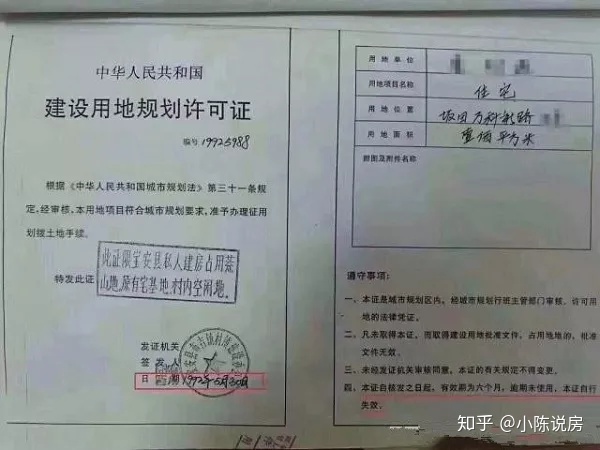 中华人民共和国
建设用地规划许可证
编号 19925988
根据《中华人民共和国城市规划法》第三十一条规
定,经审核,本用地项目符合城市规划要求,准予办理征用
划拨土地手续。
特发此证
此证限宝安县私人建房占用荒
山地、原有宅基地、村内空闲地。
发证机关
签发人
日期 1992年5月30日
用地单位
用地项目名称 住宅
用地位置 坂田
用地面积 壹佰平方米
附图及附件名称
遵守事项:
一、本证是城市规划区内,经城市规划行班主管部门审核,许可用
地的法律凭证。
二、凡未取得本证,而取得建设用地批准文件、占用地地的,批准
文件无效。
三、未经发证机关审核同意,本证的有关规定不得变更。
四、本证自核发之日起,有效期为六个月,逾期未使用,本证自行
失效。
知乎 @小陈说房